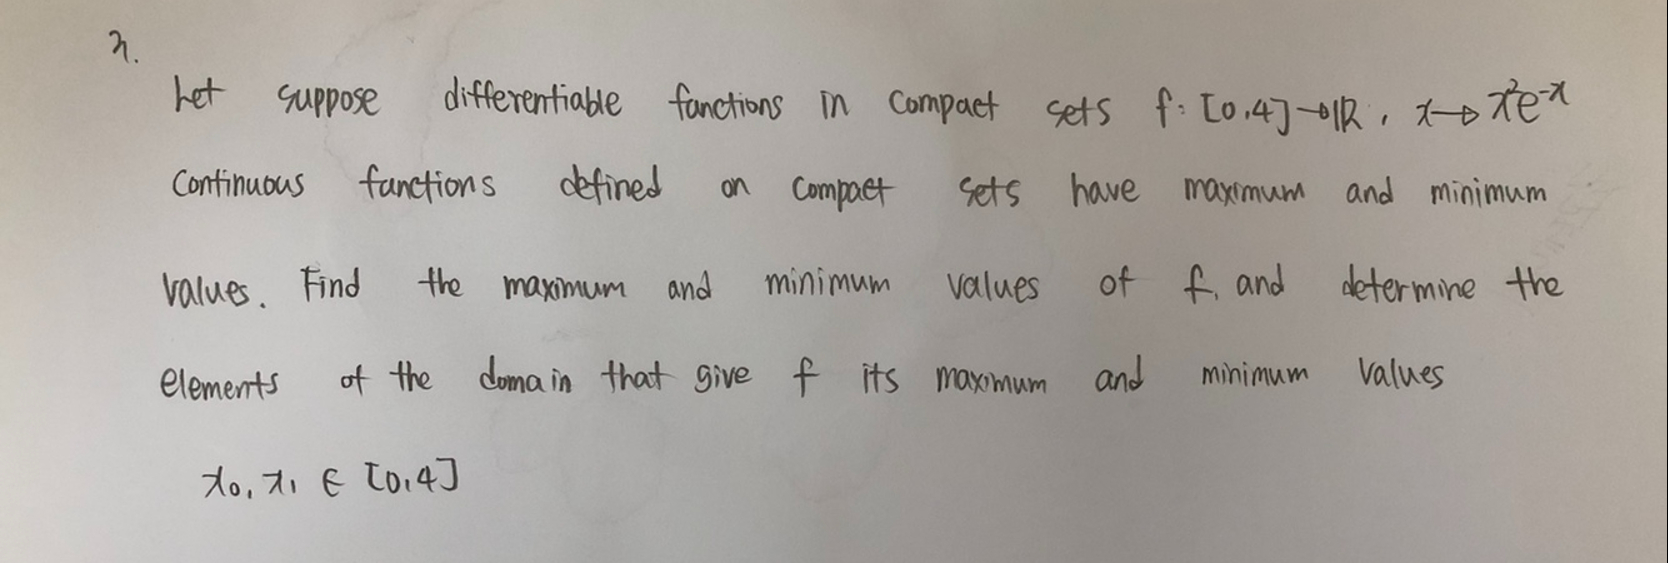 3.
Let suppose differentiable functions in compact sets f: [0,4]→ℝ, x→x²e⁻ˣ
Continuous functions defined on compact sets have maximum and minimum
values. Find the maximum and minimum values of f, and determine the
elements of the domain that give f its maximum and minimum values
x₀, x₁ ∈ [0,4]